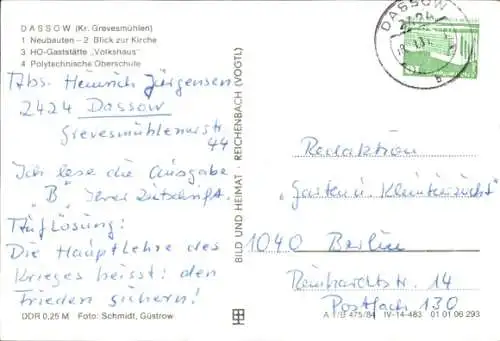 DASSOW (Kr. Grevesmühlen)
1 Neubauten – 2 Blick zur Kirche
3 HO-Gaststätte „Volkshaus"
4 Polytechnische Oberschule
Abs. Heinrich Jürgensen
2424 Dassow
Grevesmühlenerstr
44
Ich lese die Ausgabe
„B" Ihrer Zeitschrift.
Auflösung:
Die Hauptlehre des
Krieges heisst: den
Frieden sichern!
DDR 0,25 M Foto: Schmidt, Güstrow
BILD UND HEIMAT · REICHENBACH (VOGTL)
DASSOW
2424
b
Redaktion
„Garten u. Kleintierzucht"
1040 Berlin
Reinhardtstr. 14
Postfach 130
A 1/B 475/84 IV-14-483 01 01 06 293